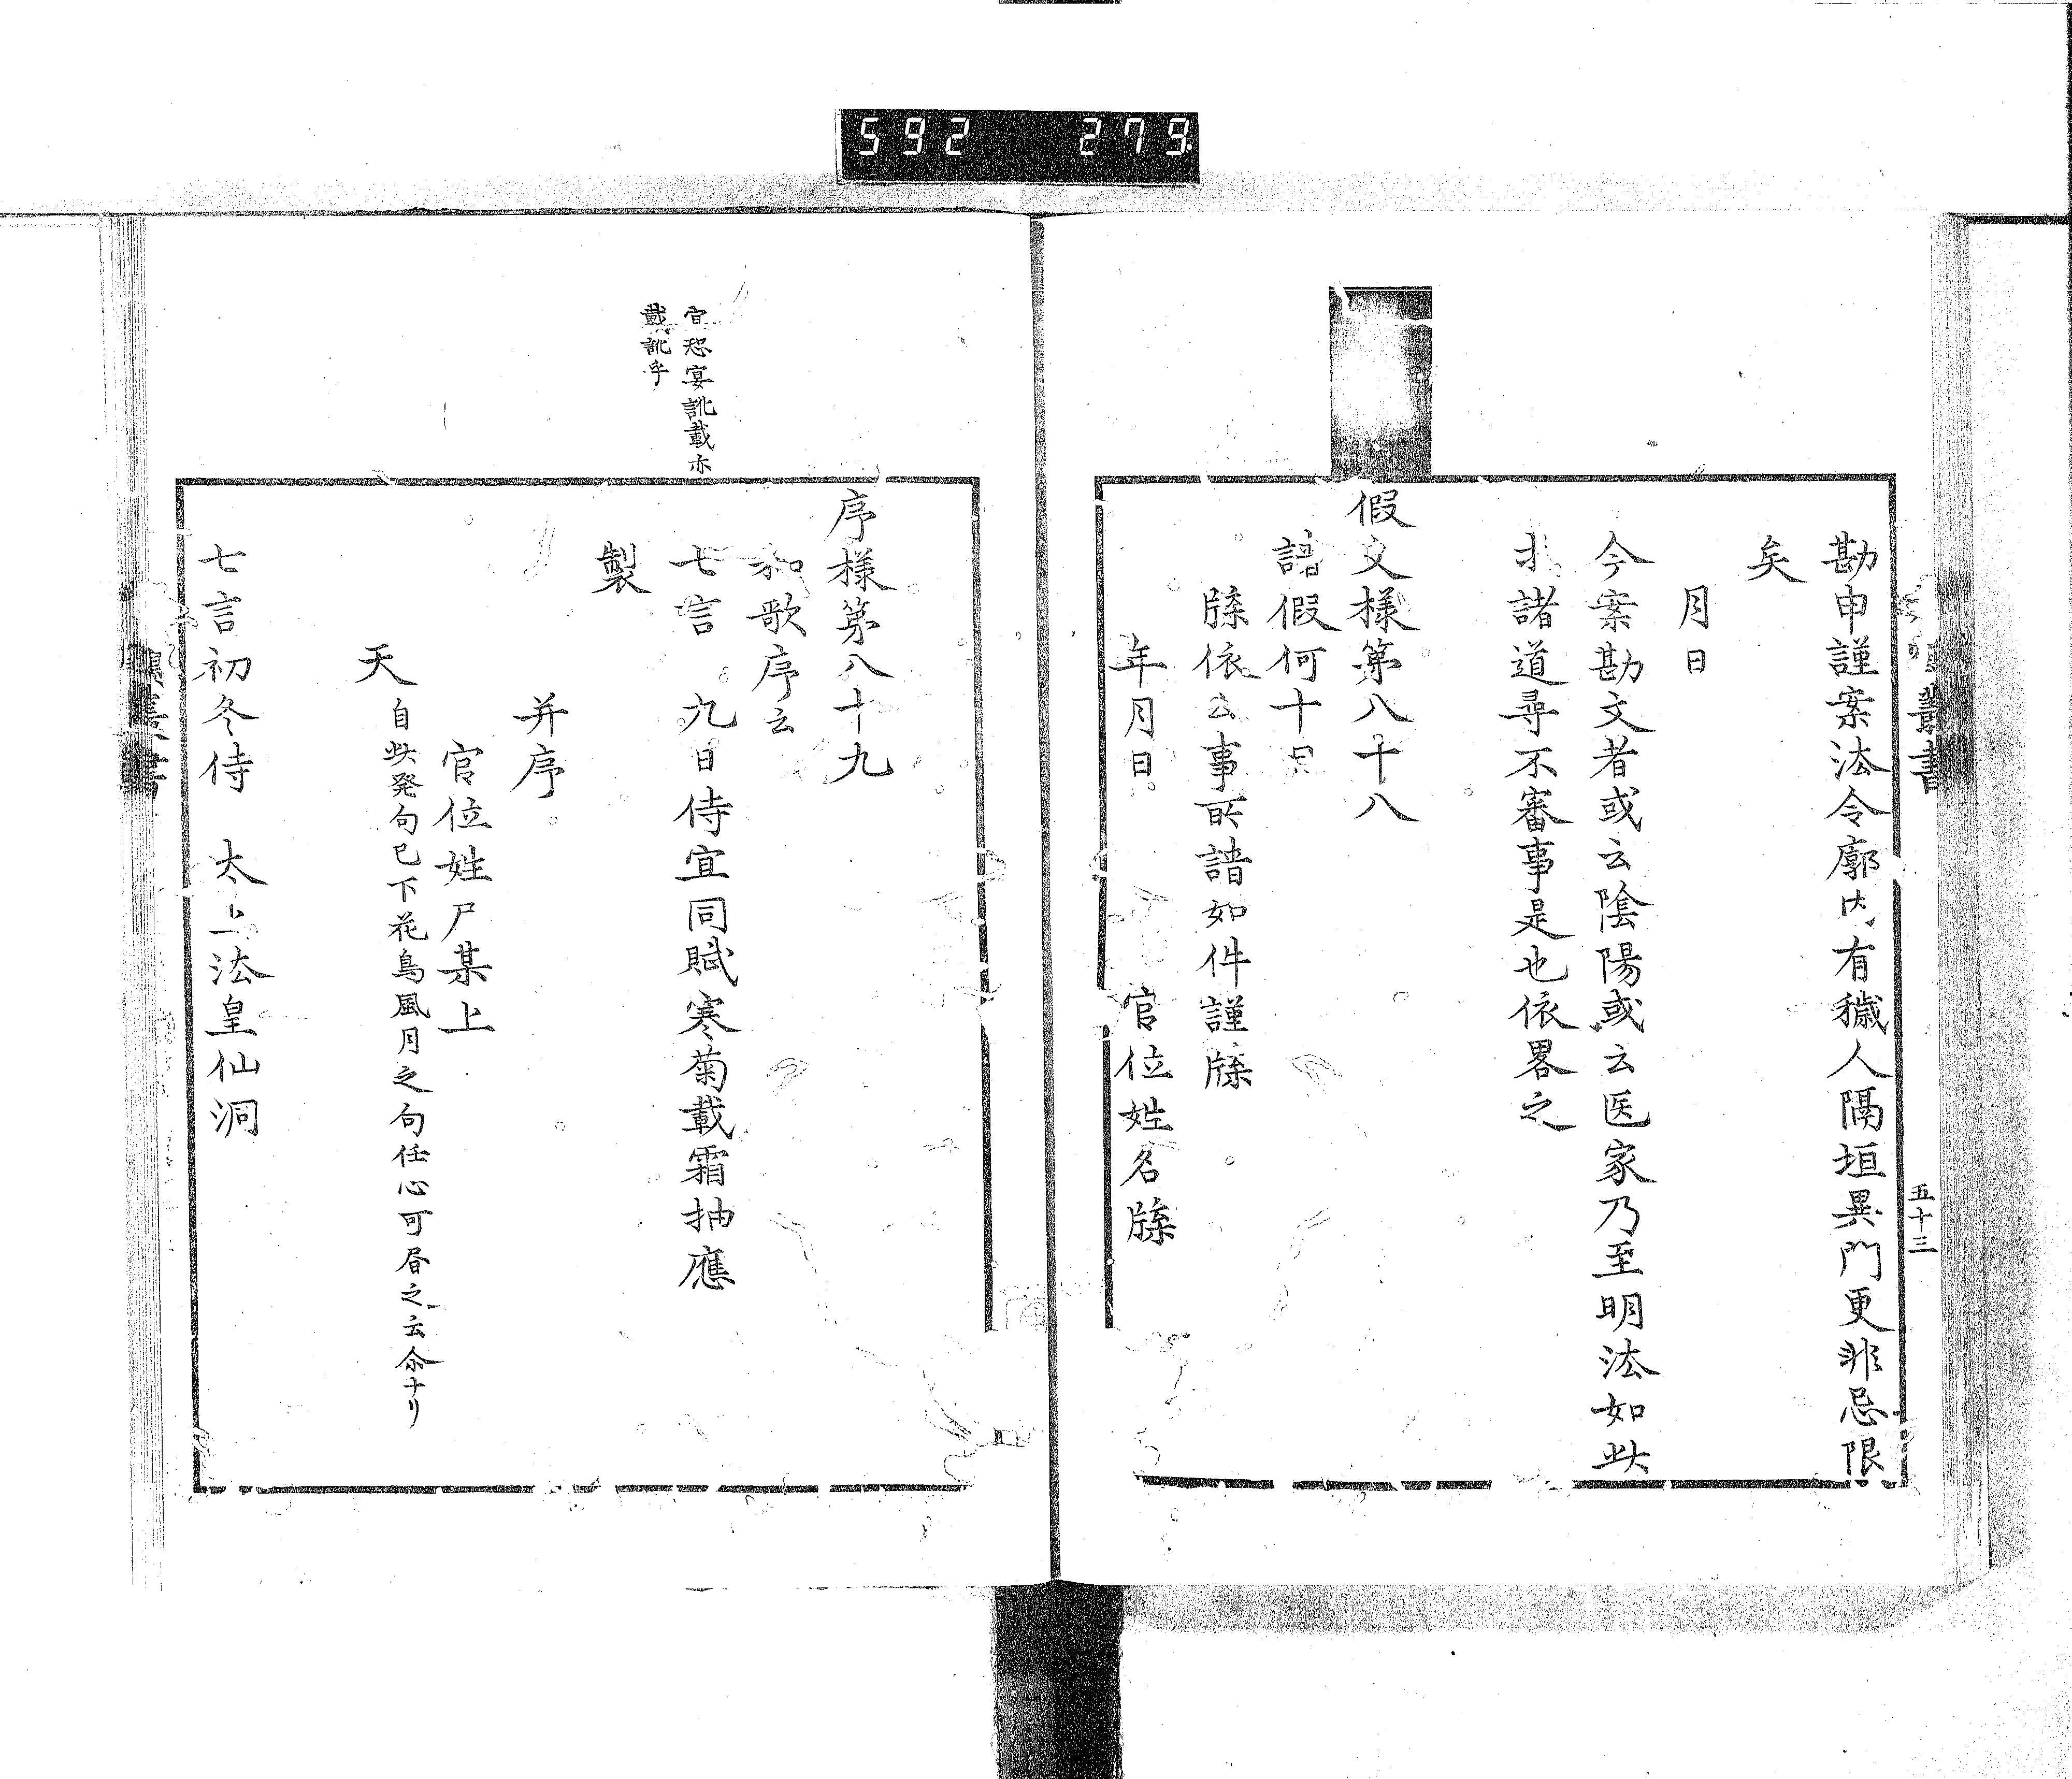 592 279
五十三
勘申謹案法令廓内有穢人隔垣異門更非忌限
矣
月日
今案勘文者或云陰陽或云医家乃至明法如此
才諸道尋不審事是也依畧之
假文様第八十八
請假何十日
牒依公事所請如件謹牒
年月日 官位姓名牒
序様第八十九
和歌序云
七言 九日侍宜同賦寒菊載霜抽應
製
并序
官位姓尸某上
天
自此発句已下花鳥風月之句任心可書之云尒ナリ
七言初冬侍 太上法皇仙洞
宜恐宴訛載亦
戴訛乎
叢書